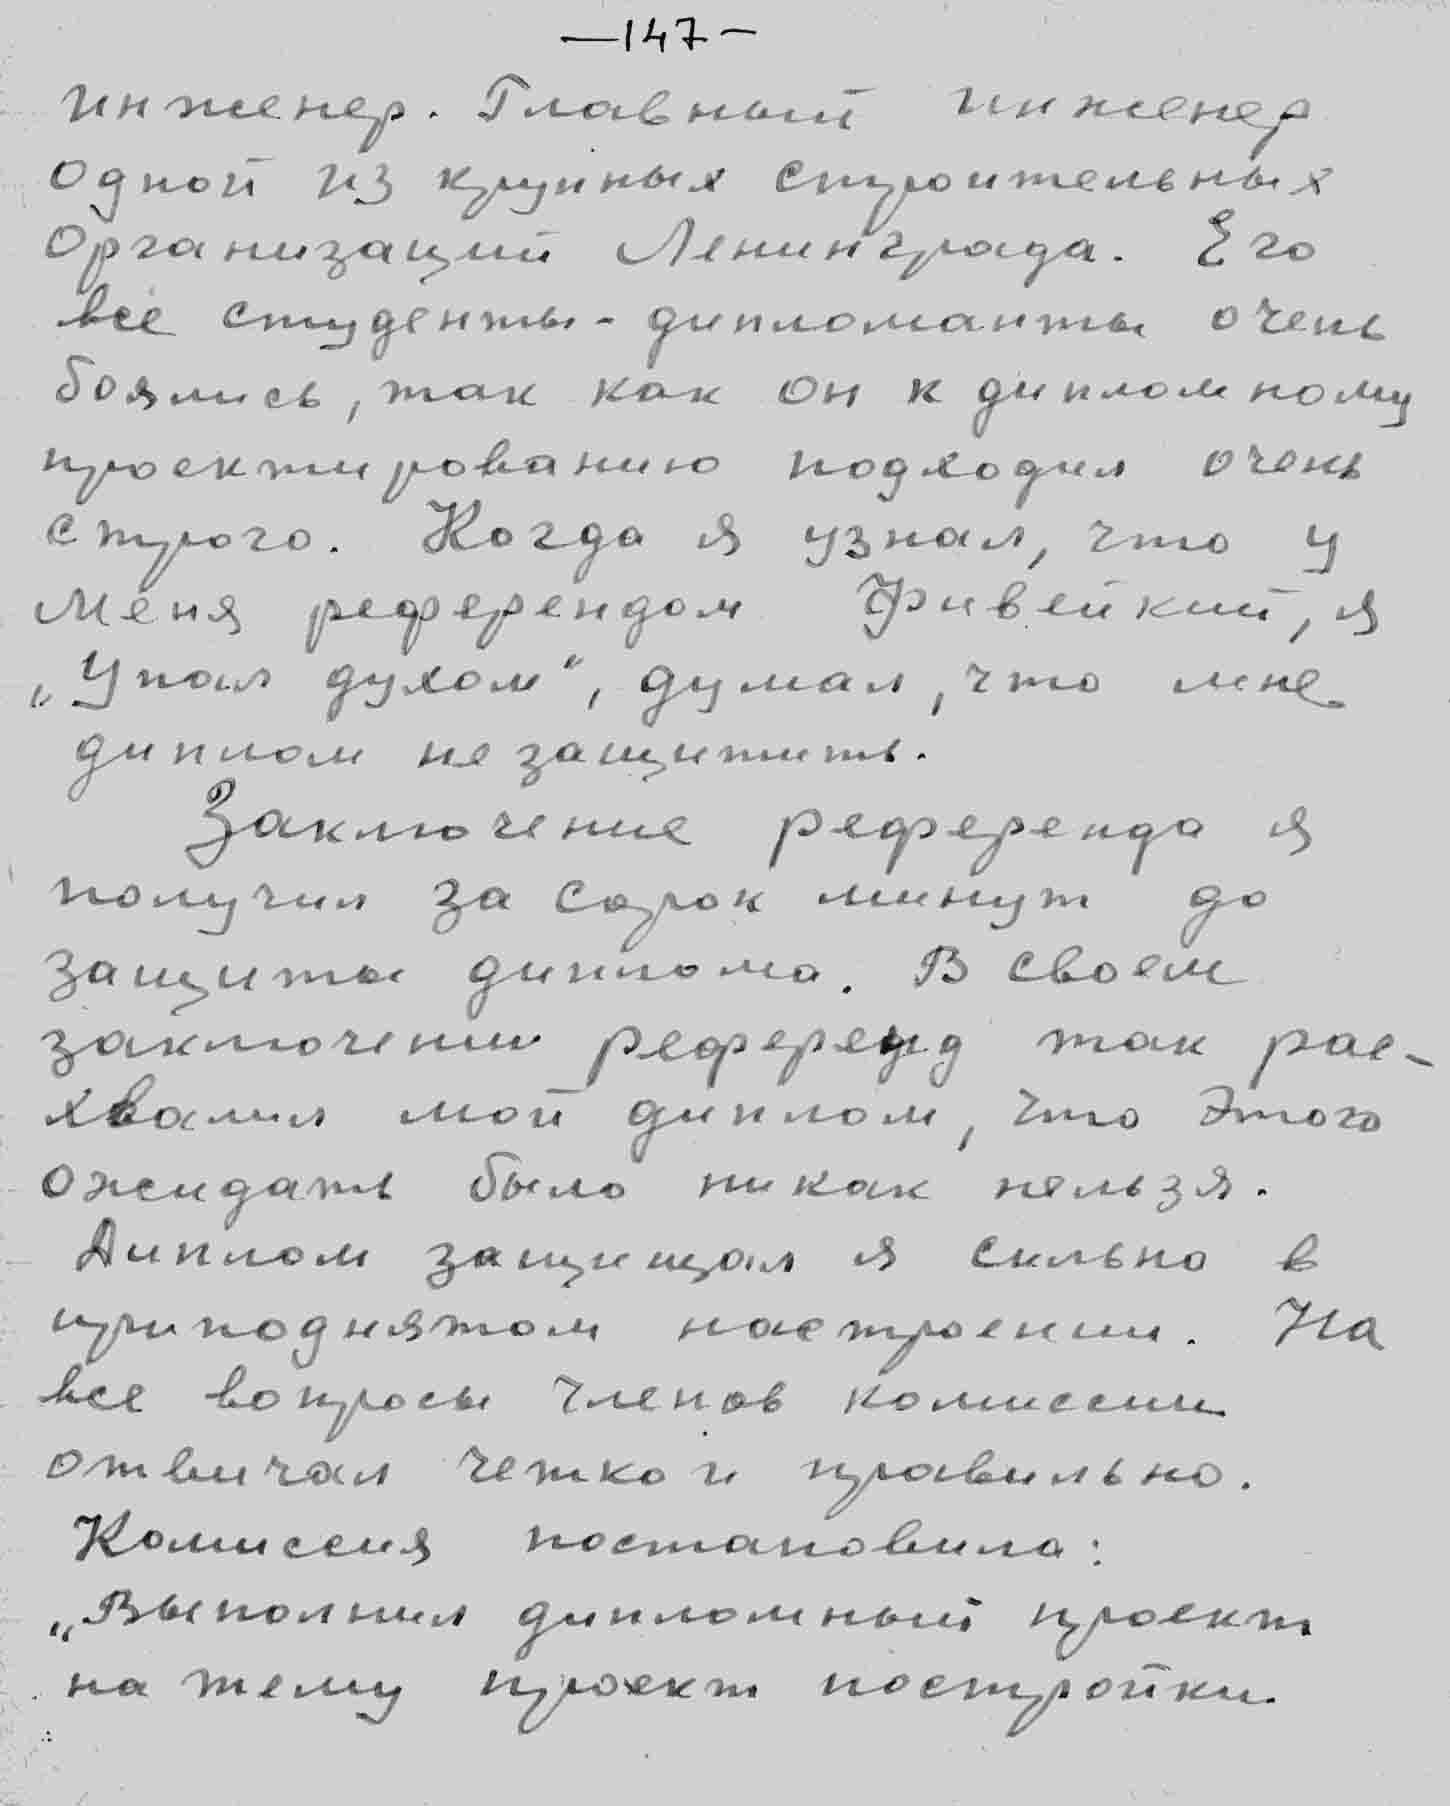 —147—
инженер. Главный инженер
одной из крупных строительных
организаций Ленинграда. Его
все студенты-дипломанты очень
боялись, так как он к дипломному
проектированию подходил очень
строго. Когда я узнал, что у
меня референдом Фивейкий, я
„Упал духом“, думал, что мне
диплом не защитить.
Заключение референда я
получил за сорок минут до
защиты диплома. В своем
заключении референд так рас-
хвалил мой диплом, что этого
ожидать было никак нельзя.
Диплом защищал я сильно в
приподнятом настроении. На
все вопросы членов комиссии
отвичал четко и правильно.
Комиссия постановила:
„Выполнил дипломный проект
на тему проект постройки